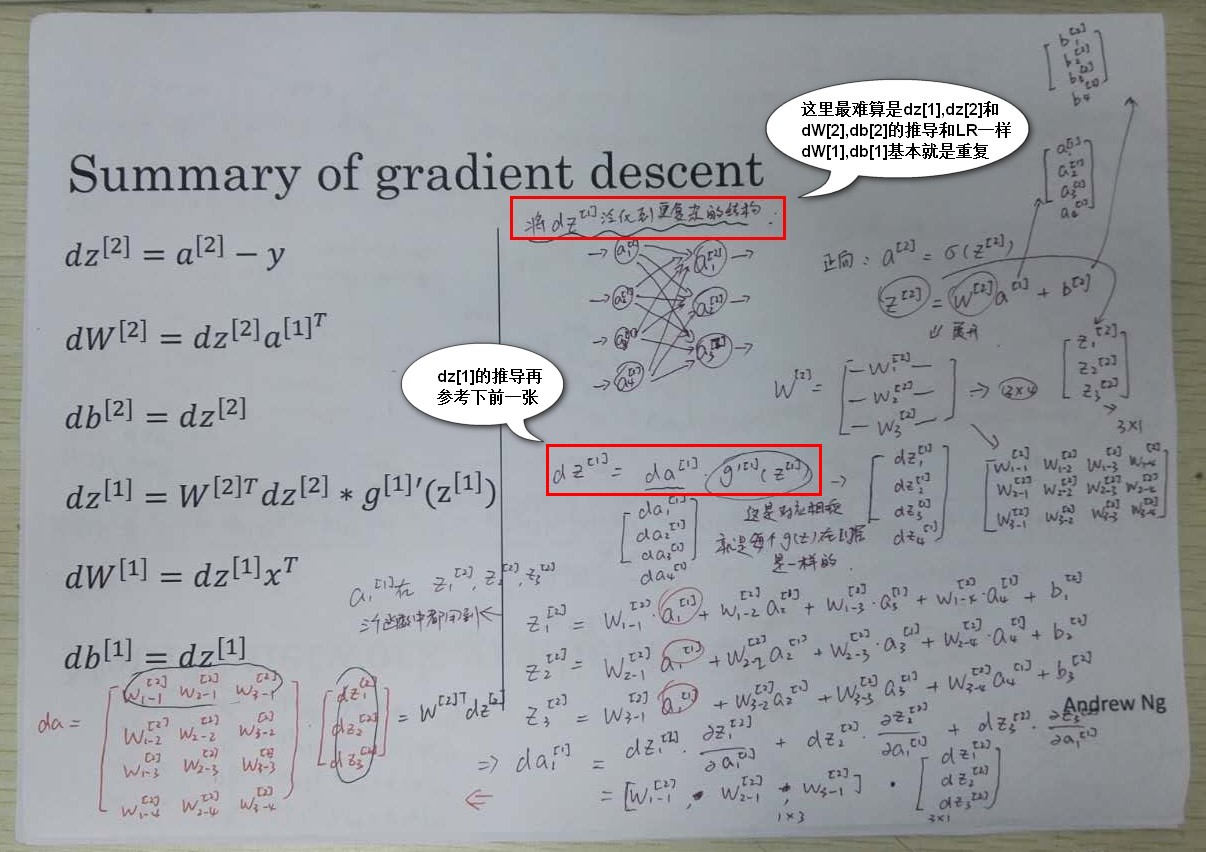 Summary of gradient descent
dz^[2] = a^[2] − y
dW^[2] = dz^[2] a^[1]^T
db^[2] = dz^[2]
dz^[1] = W^[2]T dz^[2] * g^[1]′(z^[1])
dW^[1] = dz^[1] x^T
db^[1] = dz^[1]
这里最难算是dz[1],dz[2]和
dW[2],db[2]的推导和LR一样
dW[1],db[1]基本就是重复
将dz^[1]泛化到更复杂的结构:
a1^[1] a1^[2]
a2^[1] a2^[2]
a3^[1] a3^[2]
a4^[1]
b1^[2]
b2^[2]
b3^[2]
b4^[2]
a1^[1]
a2^[1]
a3^[1]
a4^[1]
正向: a^[2] = σ(z^[2])
z^[2] = W^[2] a^[1] + b^[2]
展开
W^[2] = [ —W1^[2]— —W2^[2]— —W3^[2] ] → 3×4
z1^[2]
z2^[2]
z3^[2]
3×1
W1-1^[2] W1-2^[2] W1-3^[2] W1-4^[2]
W2-1^[2] W2-2^[2] W2-3^[2] W2-4^[2]
W3-1^[2] W3-2^[2] W3-3^[2] W3-4^[2]
dz[1]的推导再
参考下前一张
dz^[1] = da^[1] · g′^[1](z^[1]) →
dz1^[1]
dz2^[1]
dz3^[1]
dz4^[1]
da1^[1]
da2^[1]
da3^[1]
da4^[1]
这是对应相乘
就是每个g(z)在
是一样的.
a1^[1]在 z1^[2], z2^[2], z3^[2]
三个函数中都用到←
z1^[2] = W1-1^[2]·a1^[1] + W1-2^[2] a2^[1] + W1-3^[2]·a3^[1] + W1-4^[2]·a4^[1] + b1^[2]
z2^[2] = W2-1^[2] a1^[1] + W2-2^[2] a2^[1] + W2-3^[2]·a3^[1] + W2-4^[2]·a4^[1] + b2^[2]
z3^[2] = W3-1^[2] a1^[1] + W3-2^[2] a2^[1] + W3-3^[2] a3^[1] + W3-4^[2] a4^[1] + b3^[2]
Andrew Ng
⇒ da1^[1] = dz1^[2]·∂z1^[2]/∂a1^[1] + dz2^[2]·∂z2^[2]/∂a1^[1] + dz3^[2]·∂z3^[2]/∂a1^[1]
= [W1-1^[2], W2-1^[2], W3-1^[2]] · [dz1^[2] dz2^[2] dz3^[2]]
1×3 3×1
⇐
da =
W1-1^[2] W2-1^[2] W3-1^[2]
W1-2^[2] W2-2^[2] W3-2^[2]
W1-3^[2] W2-3^[2] W3-3^[2]
W1-4^[2] W2-4^[2] W3-4^[2]
· [dz1^[2] dz2^[2] dz3^[2]] = W^[2]T dz^[2]